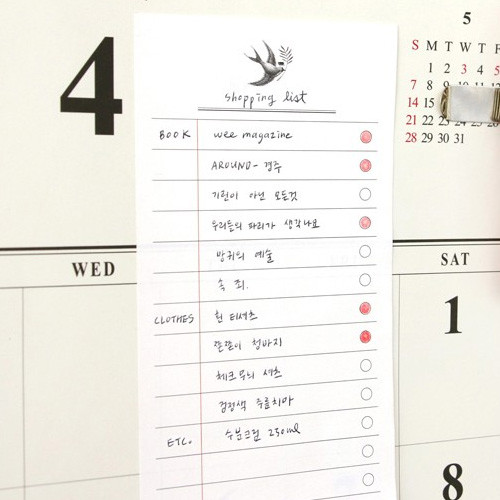 4
shopping list
BOOK wee magazine
AROUND - 경주
기린이 아닌 모든것
우리들의 파리가 생각나요
방귀의 예술
속 죄.
CLOTHES 흰 티셔츠
뜯뜯이 청바지
체크무늬 셔츠
검정색 주름치마
ETC. 수분크림 250ml
WED
SAT
1
8
5
S M T W T F
1 2 3 4 5
7 8
14 15
21 22 23 24 25 26
28 29 30 31